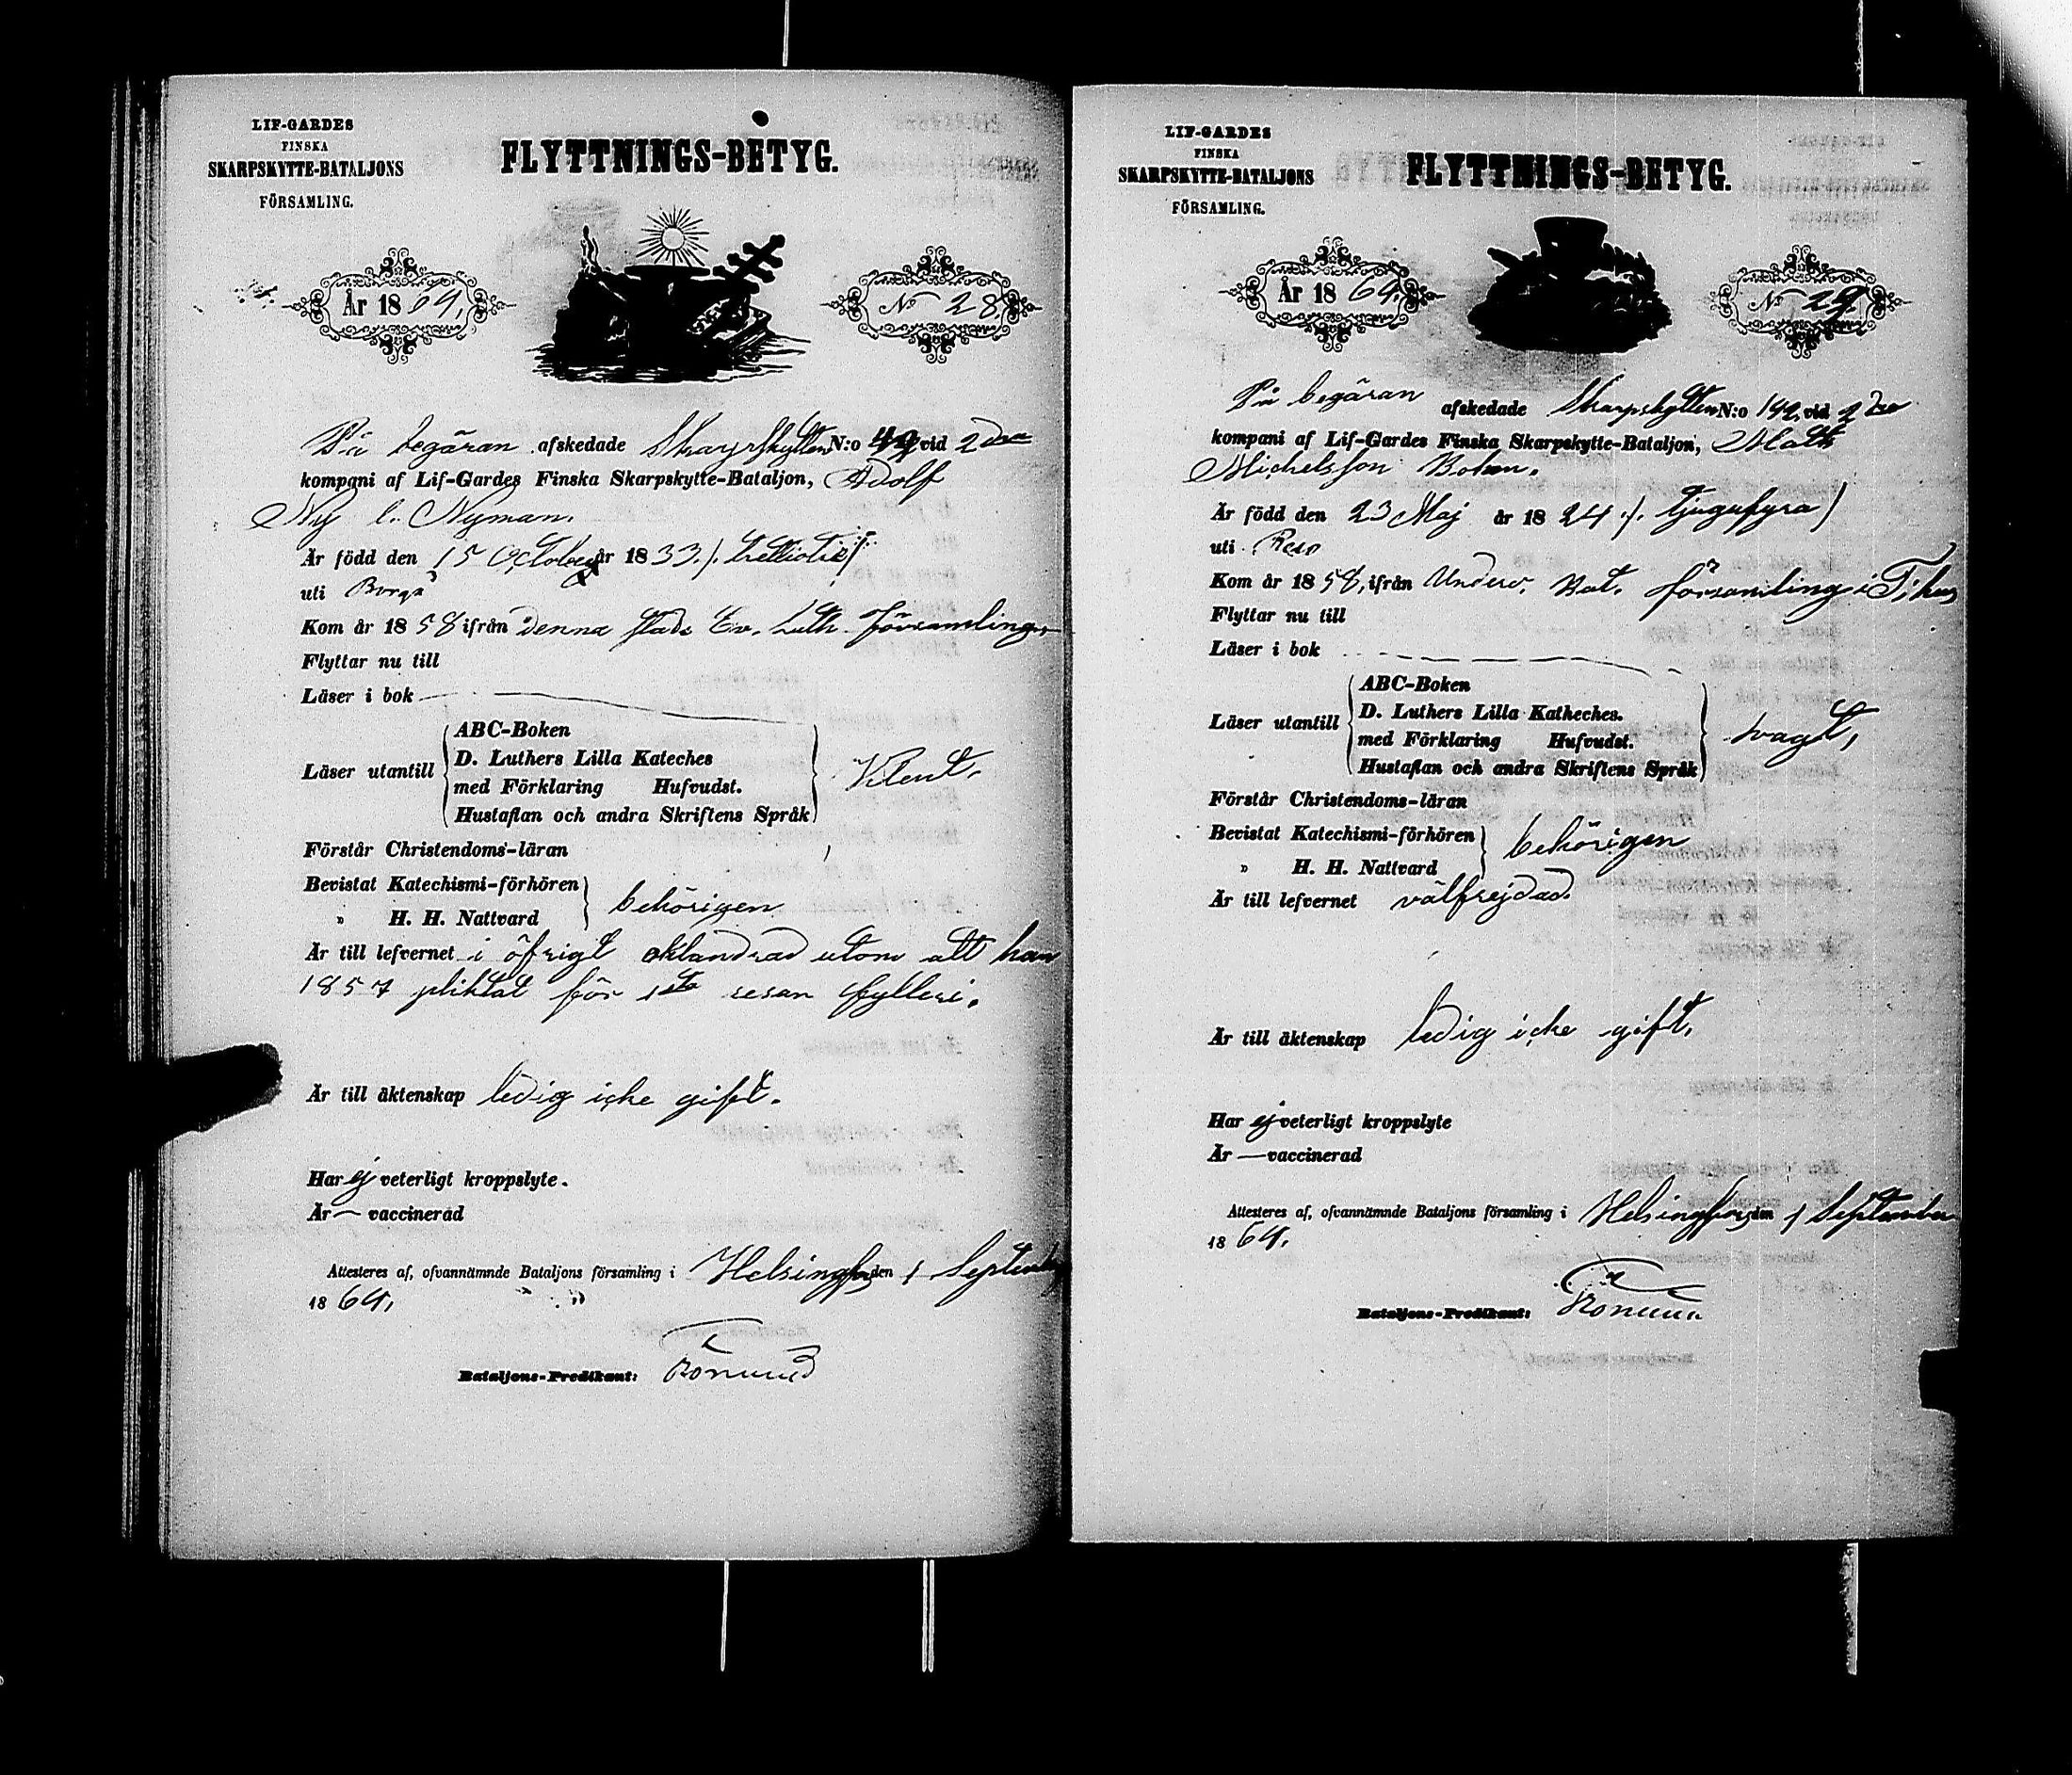 LIF-GARDES
FINSKA
SKARPSKYTTE-BATALJONS
FÖRSAMLING.
FLYTTNINGS-BETYG.
År 1864.
No 28
På begäran afskedade Skarpskytten N:o 42 vid 2dra
kompani af Lif-Gardes Finska Skarpskytte-Bataljon, Adolf
Ny l. Nyman.
Är född den 15 October år 1833 ./. trettiotre ./.
uti Borgå
Kom år 1858 ifrån denna stads Ev. Luth. församling
Flyttar nu till
Läser i bok
Läser utantill
ABC-Boken
D. Luthers Lilla Kateches
med Förklaring Hufvudst.
Hustaflan och andra Skriftens Språk
Förstår Christendoms-läran
Bevistat Katechismi-förhören
" H. H. Nattvard
behörigen
Är till lefvernet i öfrigt oklandrad utom att han
1857 pliktat för 1sta resan fylleri.
Är till äktenskap ledig icke gift.
Har ej veterligt kroppslyte.
Är — vaccinerad
Attesteras af, ofvannämnde Bataljons församling i Helsingfors den 1 September
1864.
Bataljons-Predikant:
LIF-GARDES
FINSKA
SKARPSKYTTE-BATALJONS
FÖRSAMLING.
FLYTTNINGS-BETYG.
År 1864.
No 29.
På begäran afskedade Skarpskytten N:o 142 vid 2dra
kompani af Lif-Gardes Finska Skarpskytte-Bataljon, Math
Michelsson Boman.
Är född den 23 Maj år 1824 ./. tjugufyra /
uti Reso
Kom år 1858, ifrån Underv. Bat. församling i T:hus
Flyttar nu till
Läser i bok
Läser utantill
ABC-Boken
D. Luthers Lilla Katheches.
med Förklaring Hufvudst.
Hustaflan och andra Skriftens Språk
svagt,
Förstår Christendoms-läran
Bevistat Katechismi-förhören
" H. H. Nattvard
behörigen
Är till lefvernet välfrejdad.
Är till äktenskap ledig icke gift.
Har ej veterligt kroppslyte
Är — vaccinerad
Attesteres af, ofvannämnde Bataljons församling i Helsingfors den 1 September
1864.
Bataljons-Predikant: